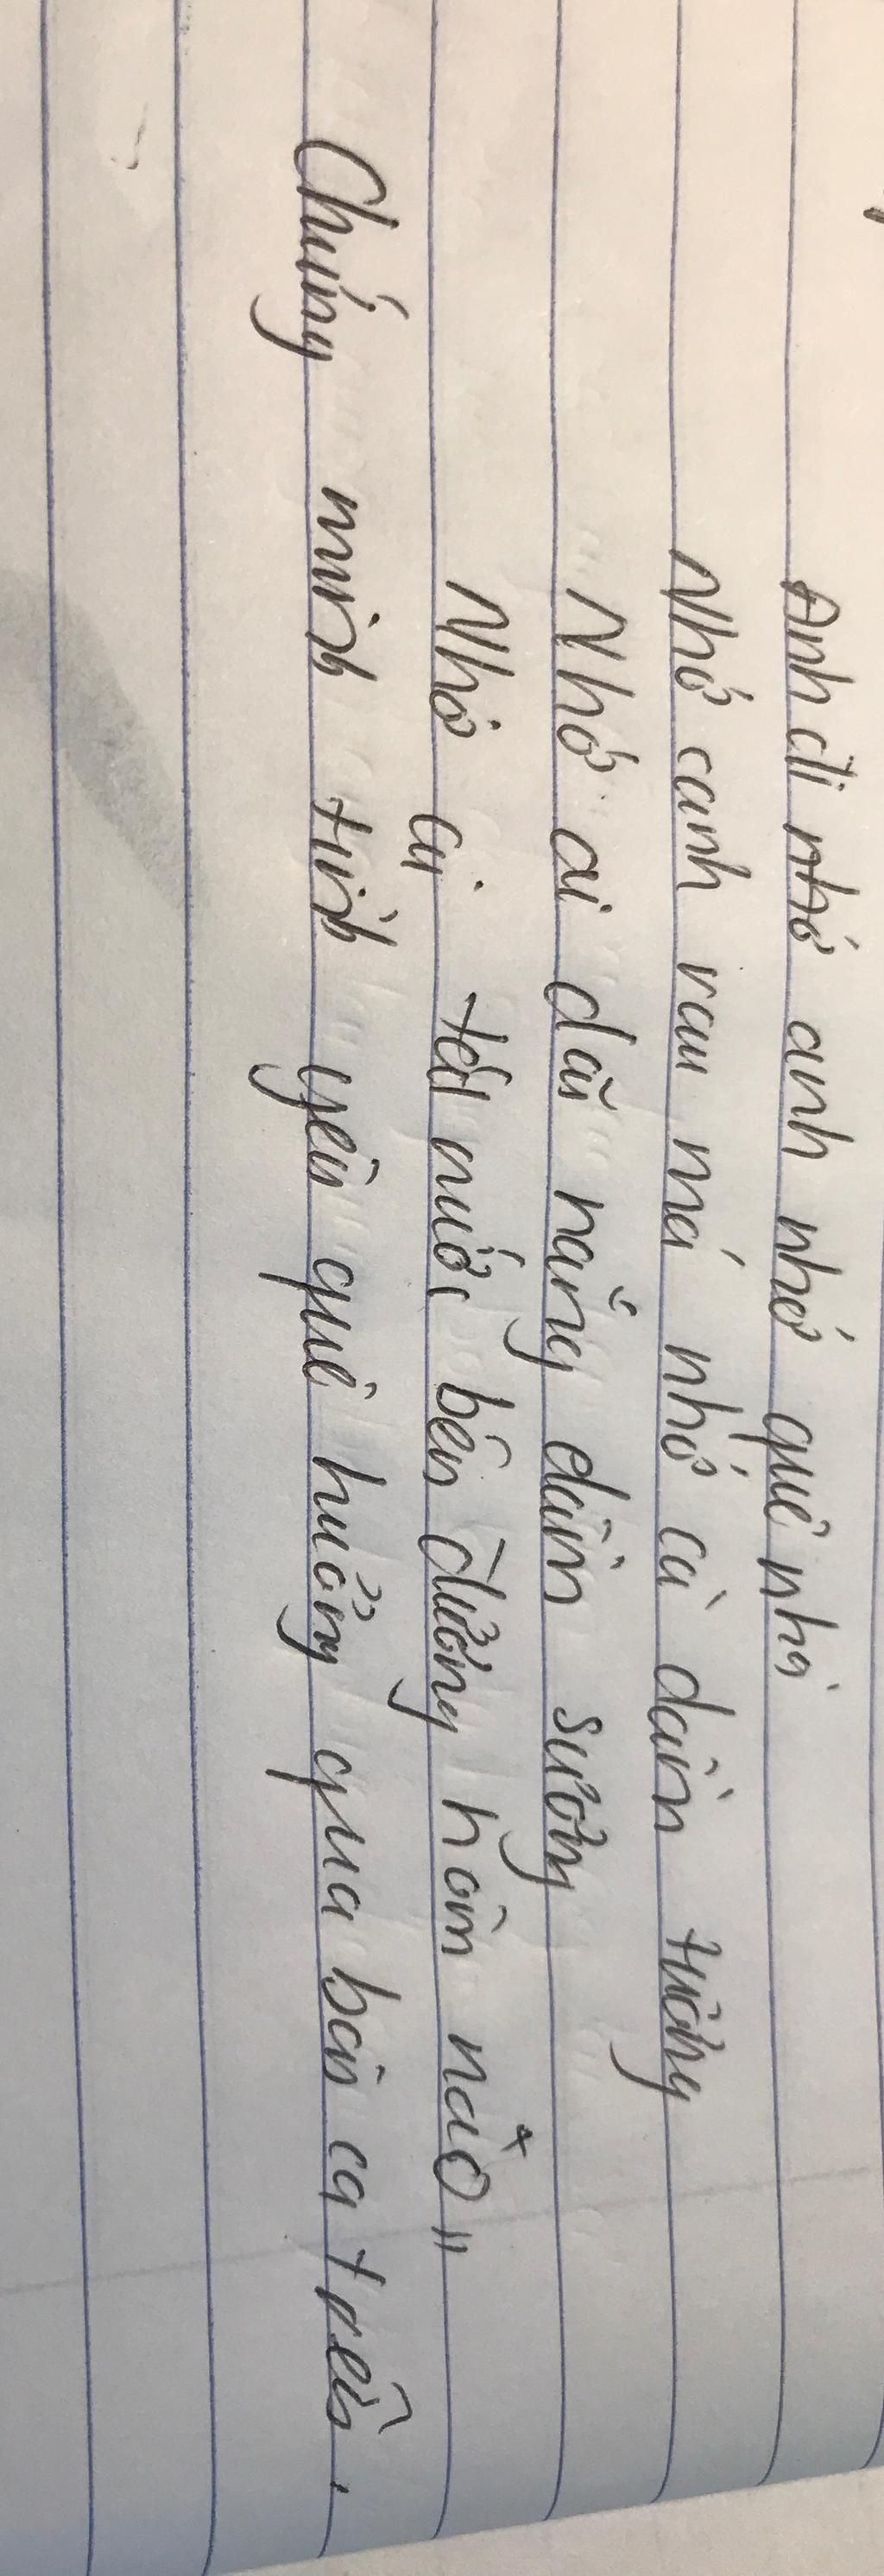 Anh đi nhớ anh nhớ quê nhà
Nhớ canh rau má nhớ cà dầm tương
Nhớ ai dãi nắng dầm sương
Nhớ ai tát nước bên đường hôm nào"
Chứng minh tình yêu quê hương qua bài ca trên.